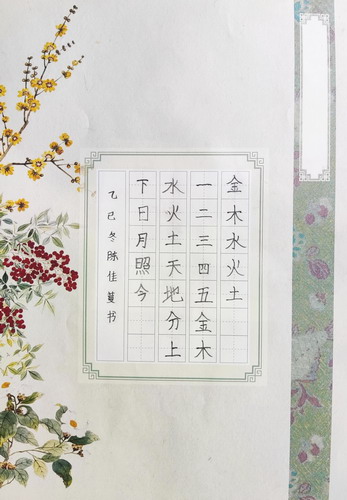 金木水火土
一二三四五金木
水火土天地分上
下日月照今
乙巳冬陈佳蔓书